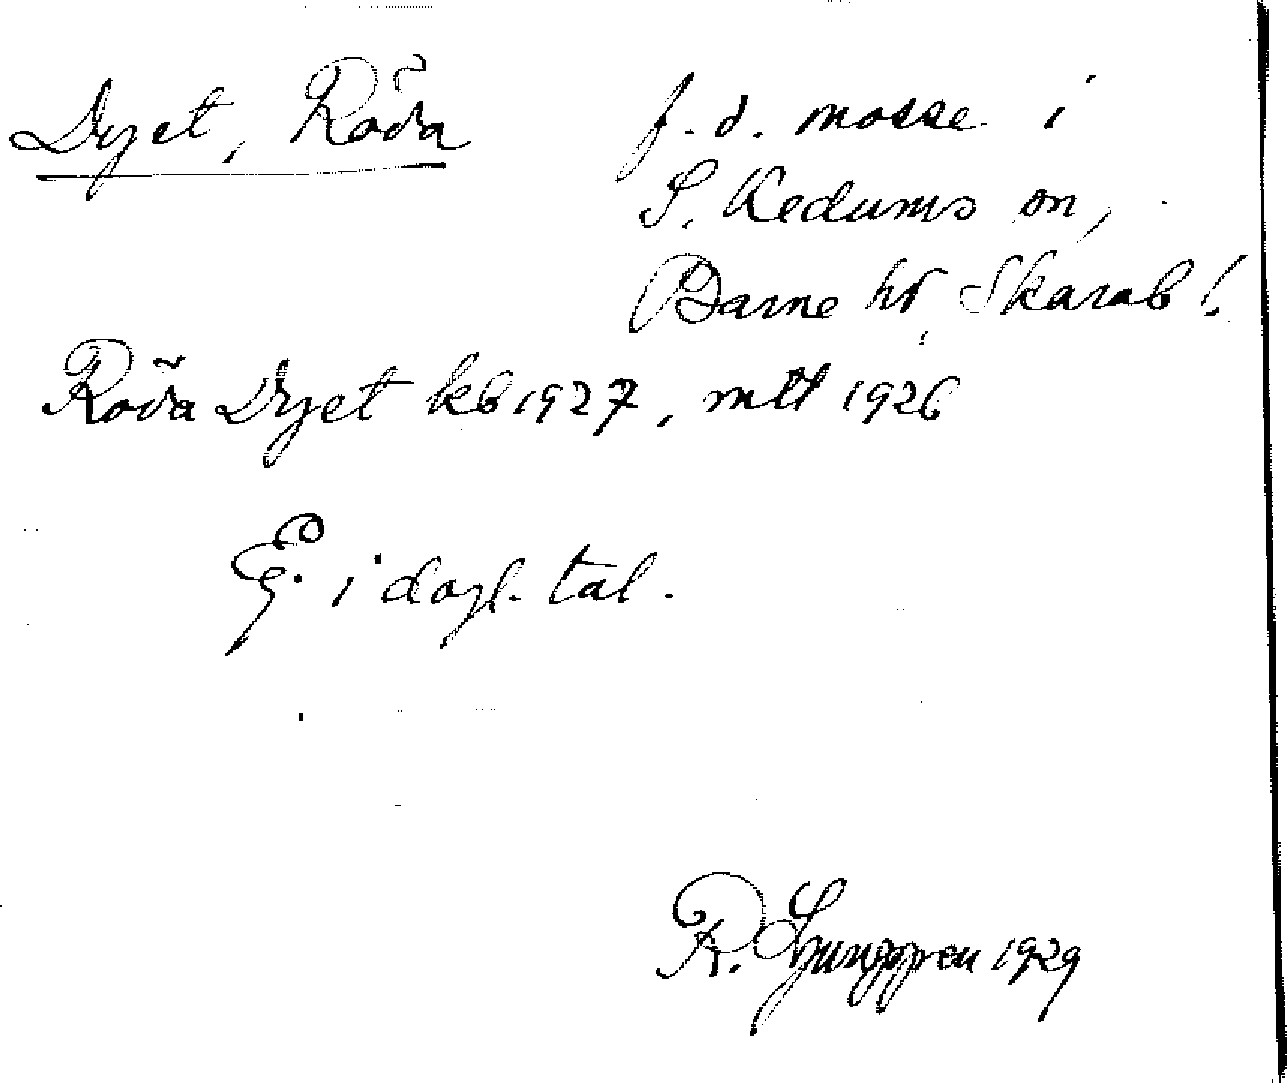 Dyet, Röda
f. d. mosse i
S. Kedums sn,
Barne hd, Skarab l.
Röda Dyet kb 1927, mtl 1926
Ej. i dagl. tal.
R. Ljunggren 1929